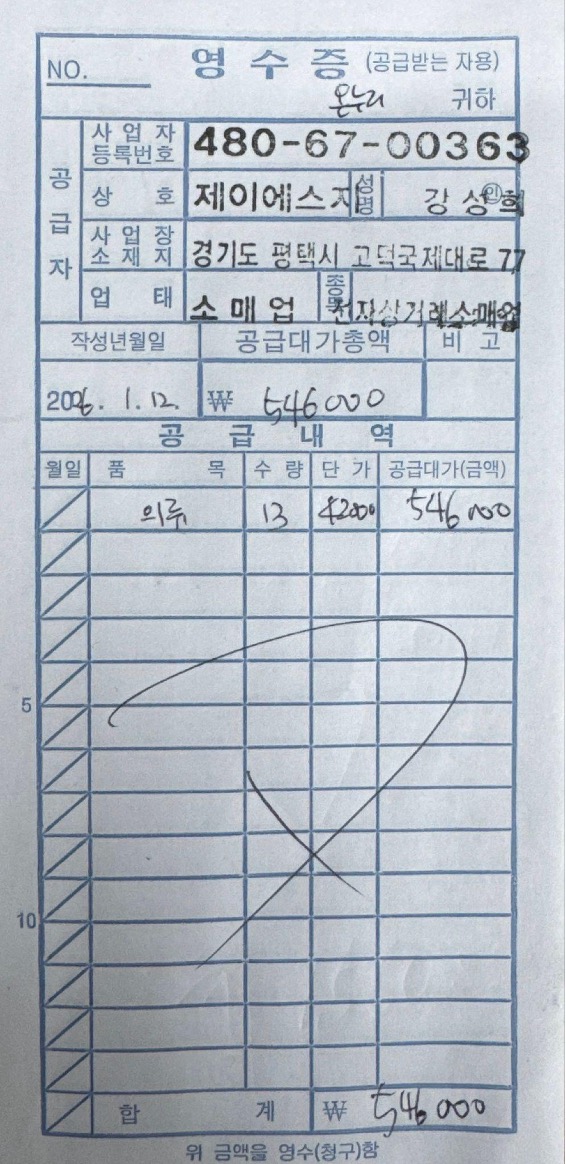 NO. 영 수 증 (공급받는 자용)
온누리 귀하
공급자
사 업 자 등록번호 480-67-00363
상 호 제이에스지 성명 강성희 ㊞
사 업 장 소 재 지 경기도 평택시 고덕국제대로 77
업 태 소매업 종목 전자상거래소매업
작성년월일 공급대가총액 비 고
2026. 1. 12. ₩ 546000
공 급 내 역
월일 품 목 수 량 단 가 공급대가(금액)
의류 13 42000 546000
5
10
합 계 ₩ 546000
위 금액을 영수(청구)함